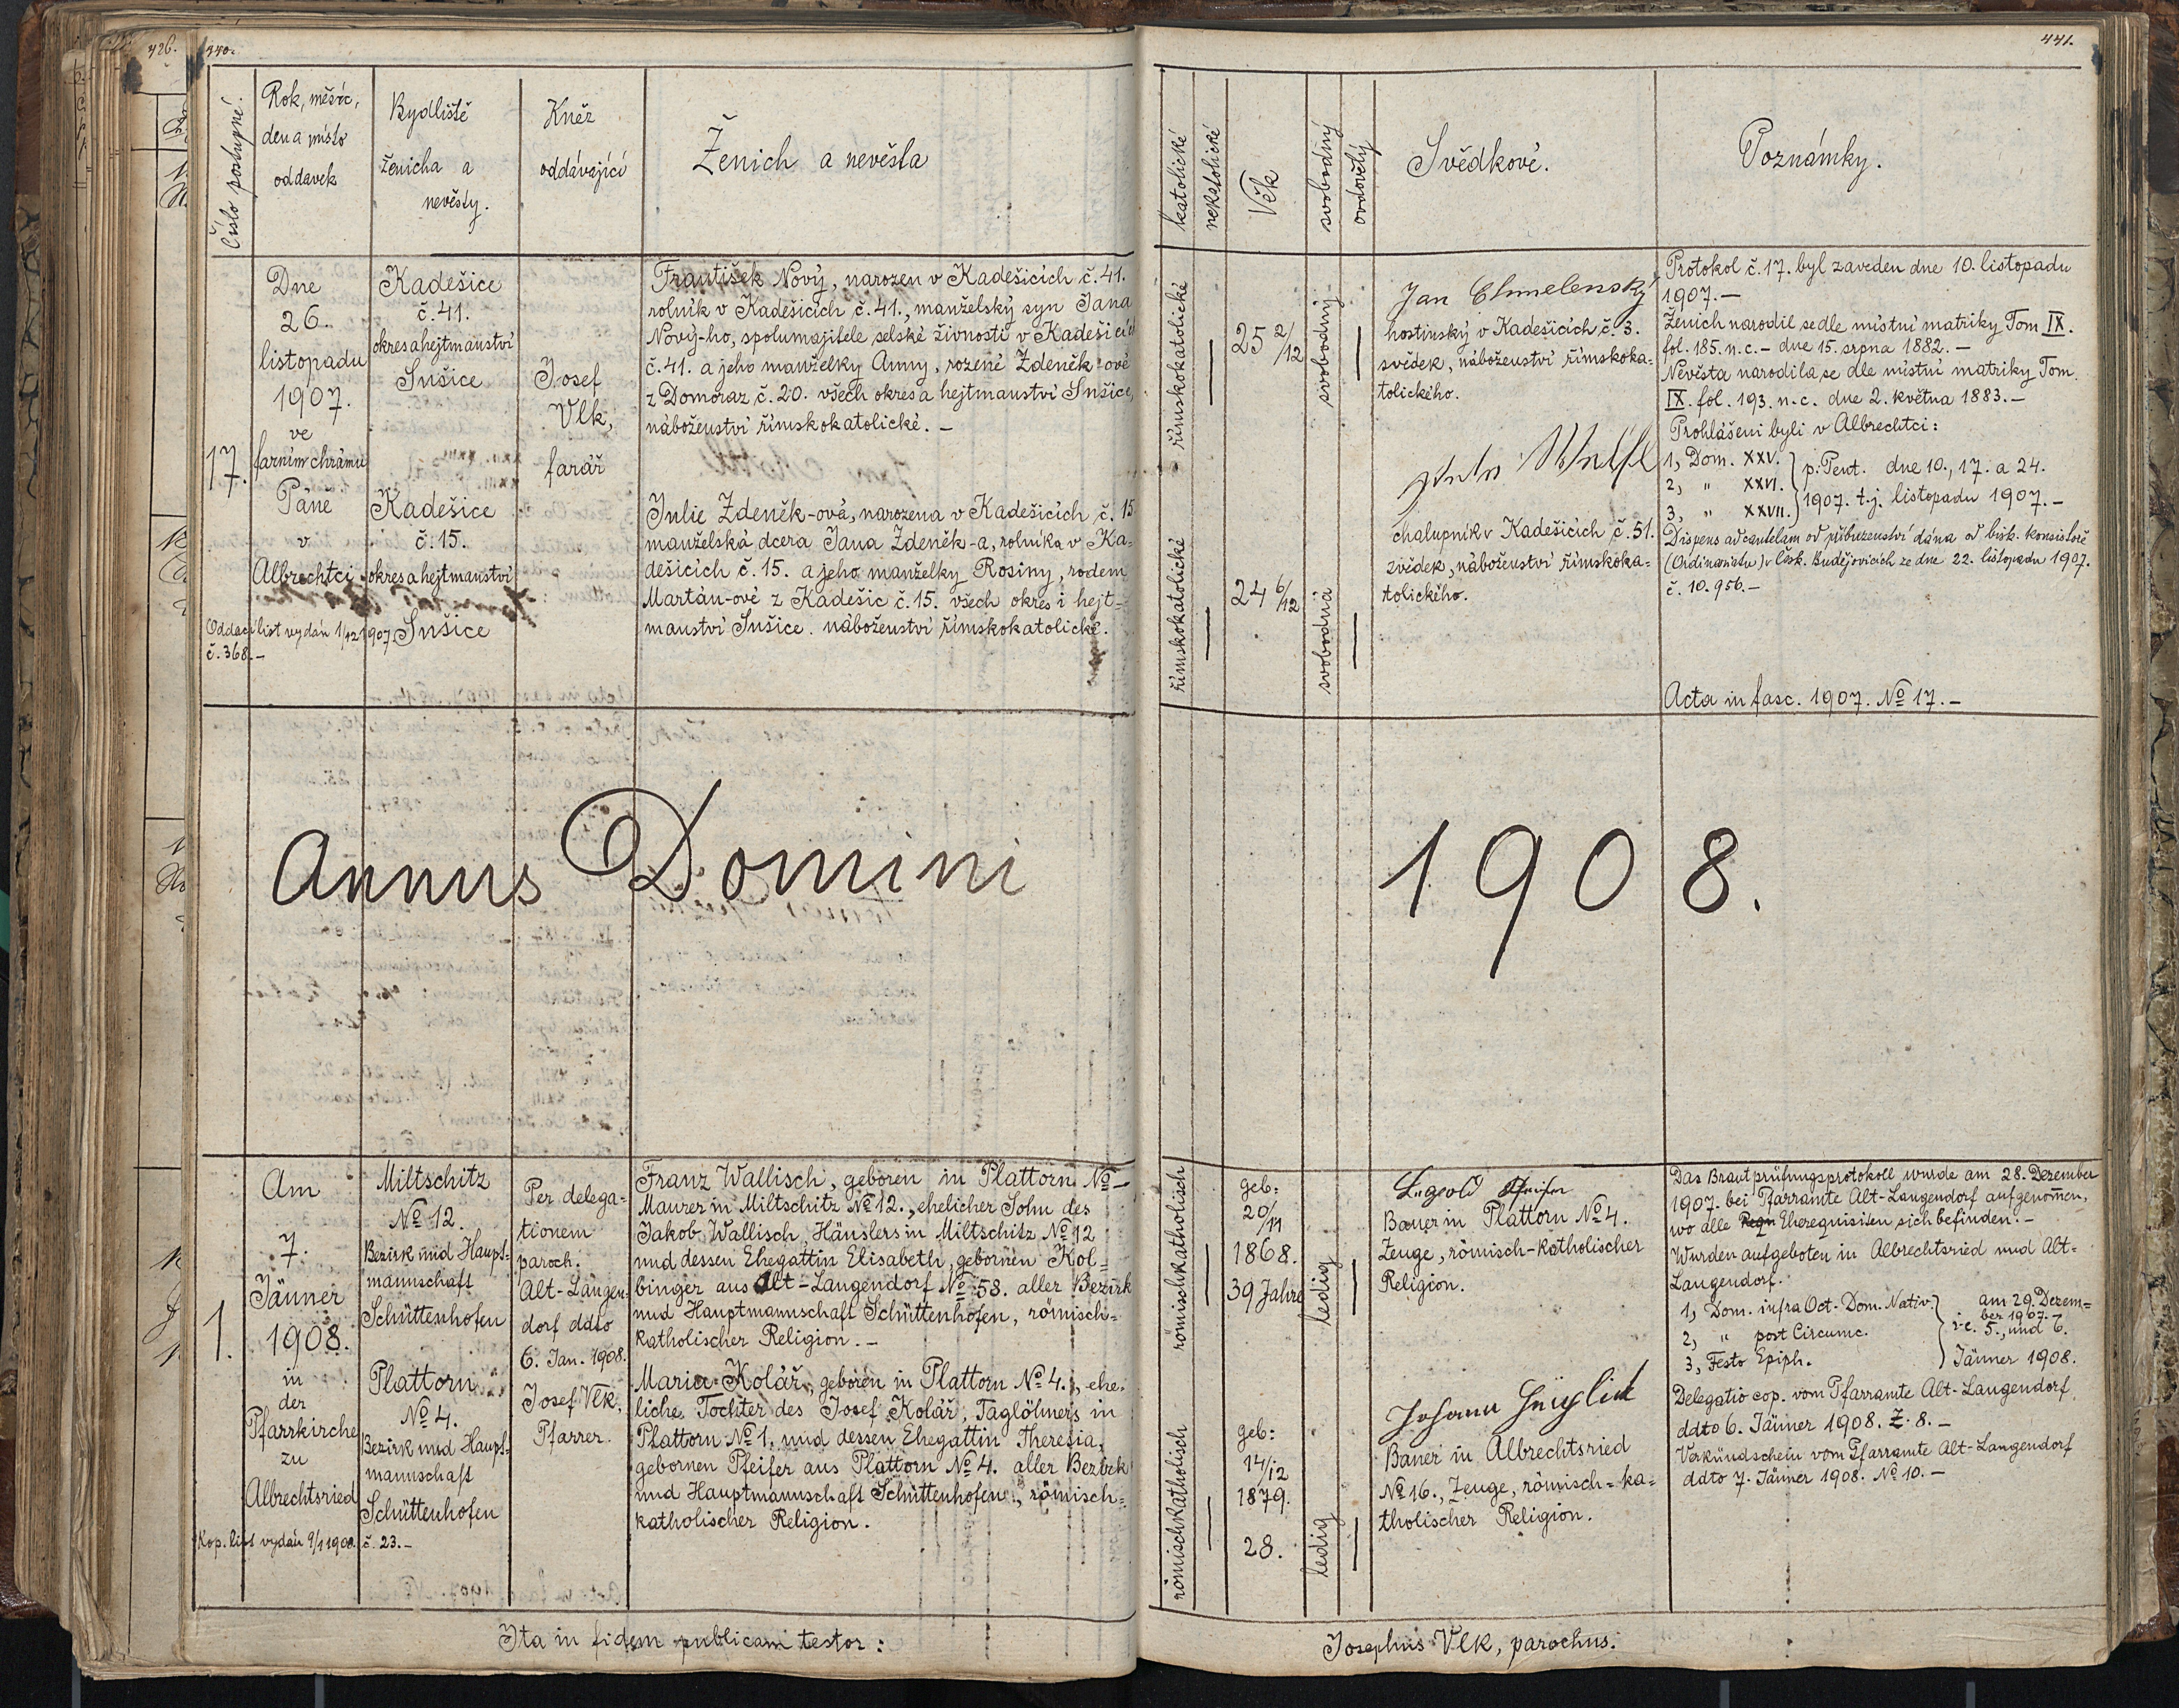 426.
440.
Číslo postupné.
Rok, měsíc,
den a místo
oddavek
Bydliště
ženicha a
nevěsty.
Kněz
oddávající
Ženich a nevěsta
17.
Dne
26.
listopadu
1907.
ve
farním chrámu
Páně
v
Albrechtci
Oddací list vydán 1/12 1907
č. 368.-
Kadešice
č. 41.
okres a hejtmanství
Sušice
Kadešice
č. 15.
okres a hejtmanství
Sušice
Josef
Vlk,
farář
František Nový, narozen v Kadešicích č. 41.
rolník v Kadešicích č. 41., manželský syn Jana
Nový-ho, spolumajitele selské živnosti v Kadešicích
č. 41. a jeho manželky Anny, rozené Zdeněk-ové
z Domoraz č. 20. všech okres a hejtmanství Sušice,
náboženství římskokatolické. -
Julie Zdeněk-ová, narozena v Kadešicích č. 15.
manželská dcera Jana Zdeněk-a, rolníka v Ka=
dešicích č. 15. a jeho manželky Rosiny, rodem
Martán-ové z Kadešic č. 15. všech okres i hejt=
manství Sušice. náboženství římskokatolické.
Annus Domini
1.
Am
7.
Jänner
1908.
in
der
Pfarrkirche
zu
Albrechtsried
Kop. list vydán 9/1 1908. č. 23.-
Miltschitz
No 12.
Bezirk und Haupt=
mannschaft
Schüttenhofen
Plattorn
No 4.
Bezirk und Haupt=
mannschaft
Schüttenhofen
Per delega=
tionem
paroch.
Alt-Langen=
dorf ddto
6. Jan. 1908.
Josef Vlk,
Pfarrer.
Franz Wallisch, geboren in Plattorn No -
Maurer in Miltschitz No 12., ehelicher Sohn des
Jakob Wallisch, Häuslers in Miltschitz No 12
und dessen Ehegattin Elisabeth, gebornen Kol=
binger aus Alt-Langendorf No 58. aller Bezirk
und Hauptmannschaft Schüttenhofen, römisch=
katholischer Religion. -
Maria Kolář, geboren in Plattorn No 4., ehe=
liche Tochter des Josef Kolář, Taglöhners in
Plattorn No 1, und dessen Ehegattin Theresia,
gebornen Pfeifer aus Plattorn No 4. aller Bezirk
und Hauptmannschaft Schüttenhofen, römisch=
katholischer Religion.
Ita in fidem publicam testor:
441.
katolické
nekatolické
Věk
svobodný
ovdovělý
Svědkové.
Poznámky.
římskokatolické
25 2/12
svobodný
římskokatolické
24 6/12
svobodná
Jan Chmelenský
hostinský v Kadešicích č. 3.
svědek, náboženství římskoka=
tolického.
chalupník v Kadešicích č. 51.
svědek, náboženství římskoka=
tolického.
Protokol č. 17. byl zaveden dne 10. listopadu
1907. -
Ženich narodil se dle místní matriky Tom IX.
fol. 185. n. c. - dne 15. srpna 1882. -
Nevěsta narodila se dle místní matriky Tom.
IX. fol. 193. n. c. dne 2. května 1883. -
Prohlášeni byli v Albrechtci:
1, Dom. XXV. p. Pent. dne 10., 17. a 24.
2, " XXVI.
3, " XXVII. 1907. t. j. listopadu 1907. -
Dispens ad cautelam od příbuzenství dána od bisk. konsistoře
(Ordinariatu) v Česk. Budějovicích ze dne 22. listopadu 1907.
č. 10.956. -
Acta in fasc. 1907. No 17. -
1908.
römischkatholisch
geb:
20/11
1868.
39 Jahre
ledig
römischkatholisch
geb:
14/12
1879.
28.
ledig
Leopold Pfeifer
Bauer in Plattorn No 4.
Zeuge, römisch-katholischer
Religion.
Johann
Bauer in Albrechtsried
No 16., Zeuge, römisch=ka=
tholischer Religion.
Das Brautprüfungsprotokoll wurde am 28. Dezember
1907. bei Pfarramte Alt-Langendorf aufgenommen,
wo alle Requ Eherequisiten sich befinden. -
Wurden aufgeboten in Albrechtsried und Alt=
Langendorf.
1, Dom. infra Oct. Dom. Nativ. am 29. Dezem=
ber 1907. -
2, " post Circumc. i. e. 5., und 6.
3, Festo Epiph. Jänner 1908.
Delegatio cop. vom Pfarramte Alt-Langendorf
ddto 6. Jänner 1908. Z. 8. -
Verkündschein vom Pfarramte Alt-Langendorf
ddto 7. Jänner 1908. No 10. -
Josephus Vlk, parochus.